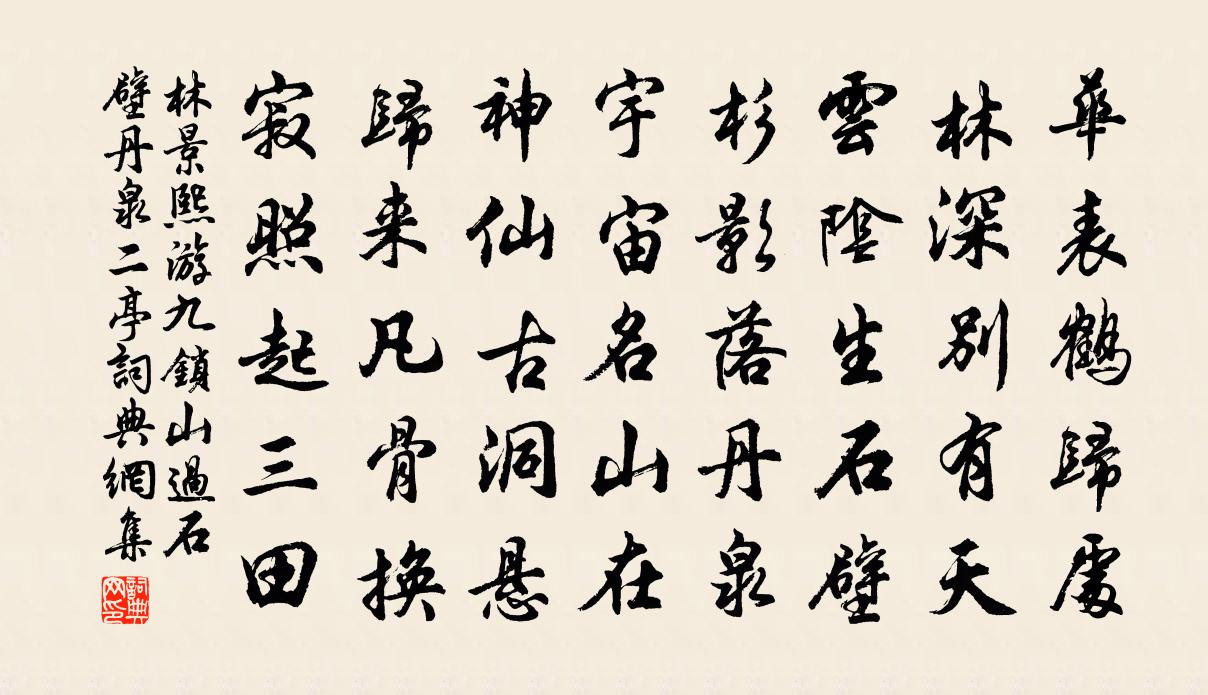 華表鶴歸處
林深別有天
雲陰生石壁
杉影落丹泉
宇宙名山在
神仙古洞悬
歸来凡骨換
寂照起三田
林景熙游九鎖山過石
壁丹泉二亭詞典網集
詞典網印